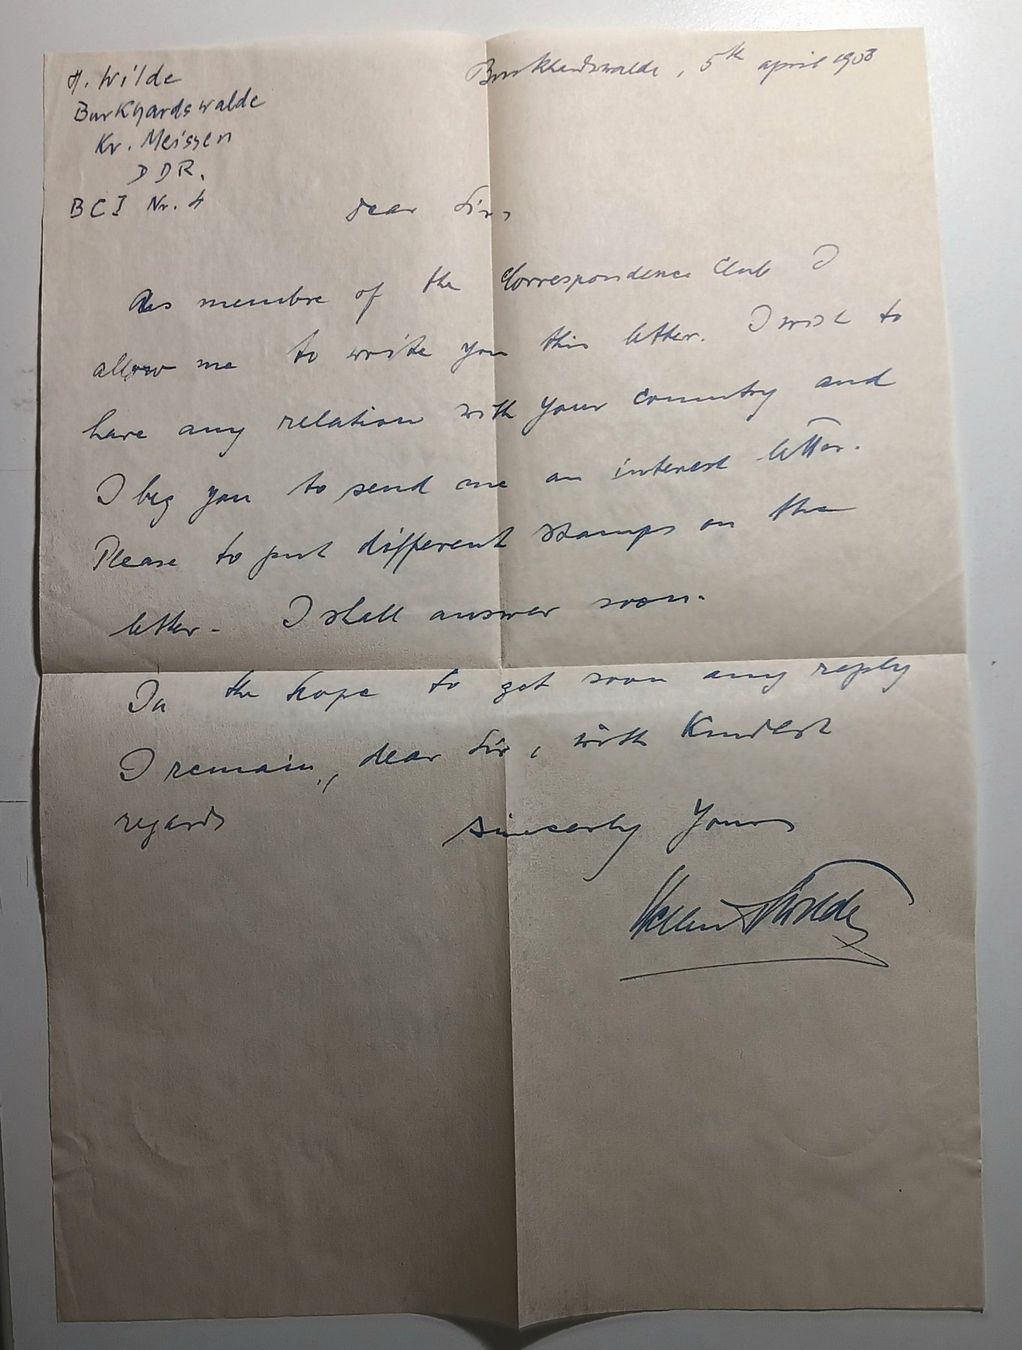 H. Wilde
Burkhardswalde
Kr. Meissen
DDR.
BCI Nr. 4
Burkhardswalde, 5th april
dear Sir,
As membre of the Correspondence Club I
allow me to write you this letter. I wish to
have any relation with your country and
I beg you to send me an interest letter.
Please to put different stamps on the
letter. I shall answer soon.
In the hope to get soon any reply
I remain, dear Sir, with Kindest
regards sincerly Yours
Wilde